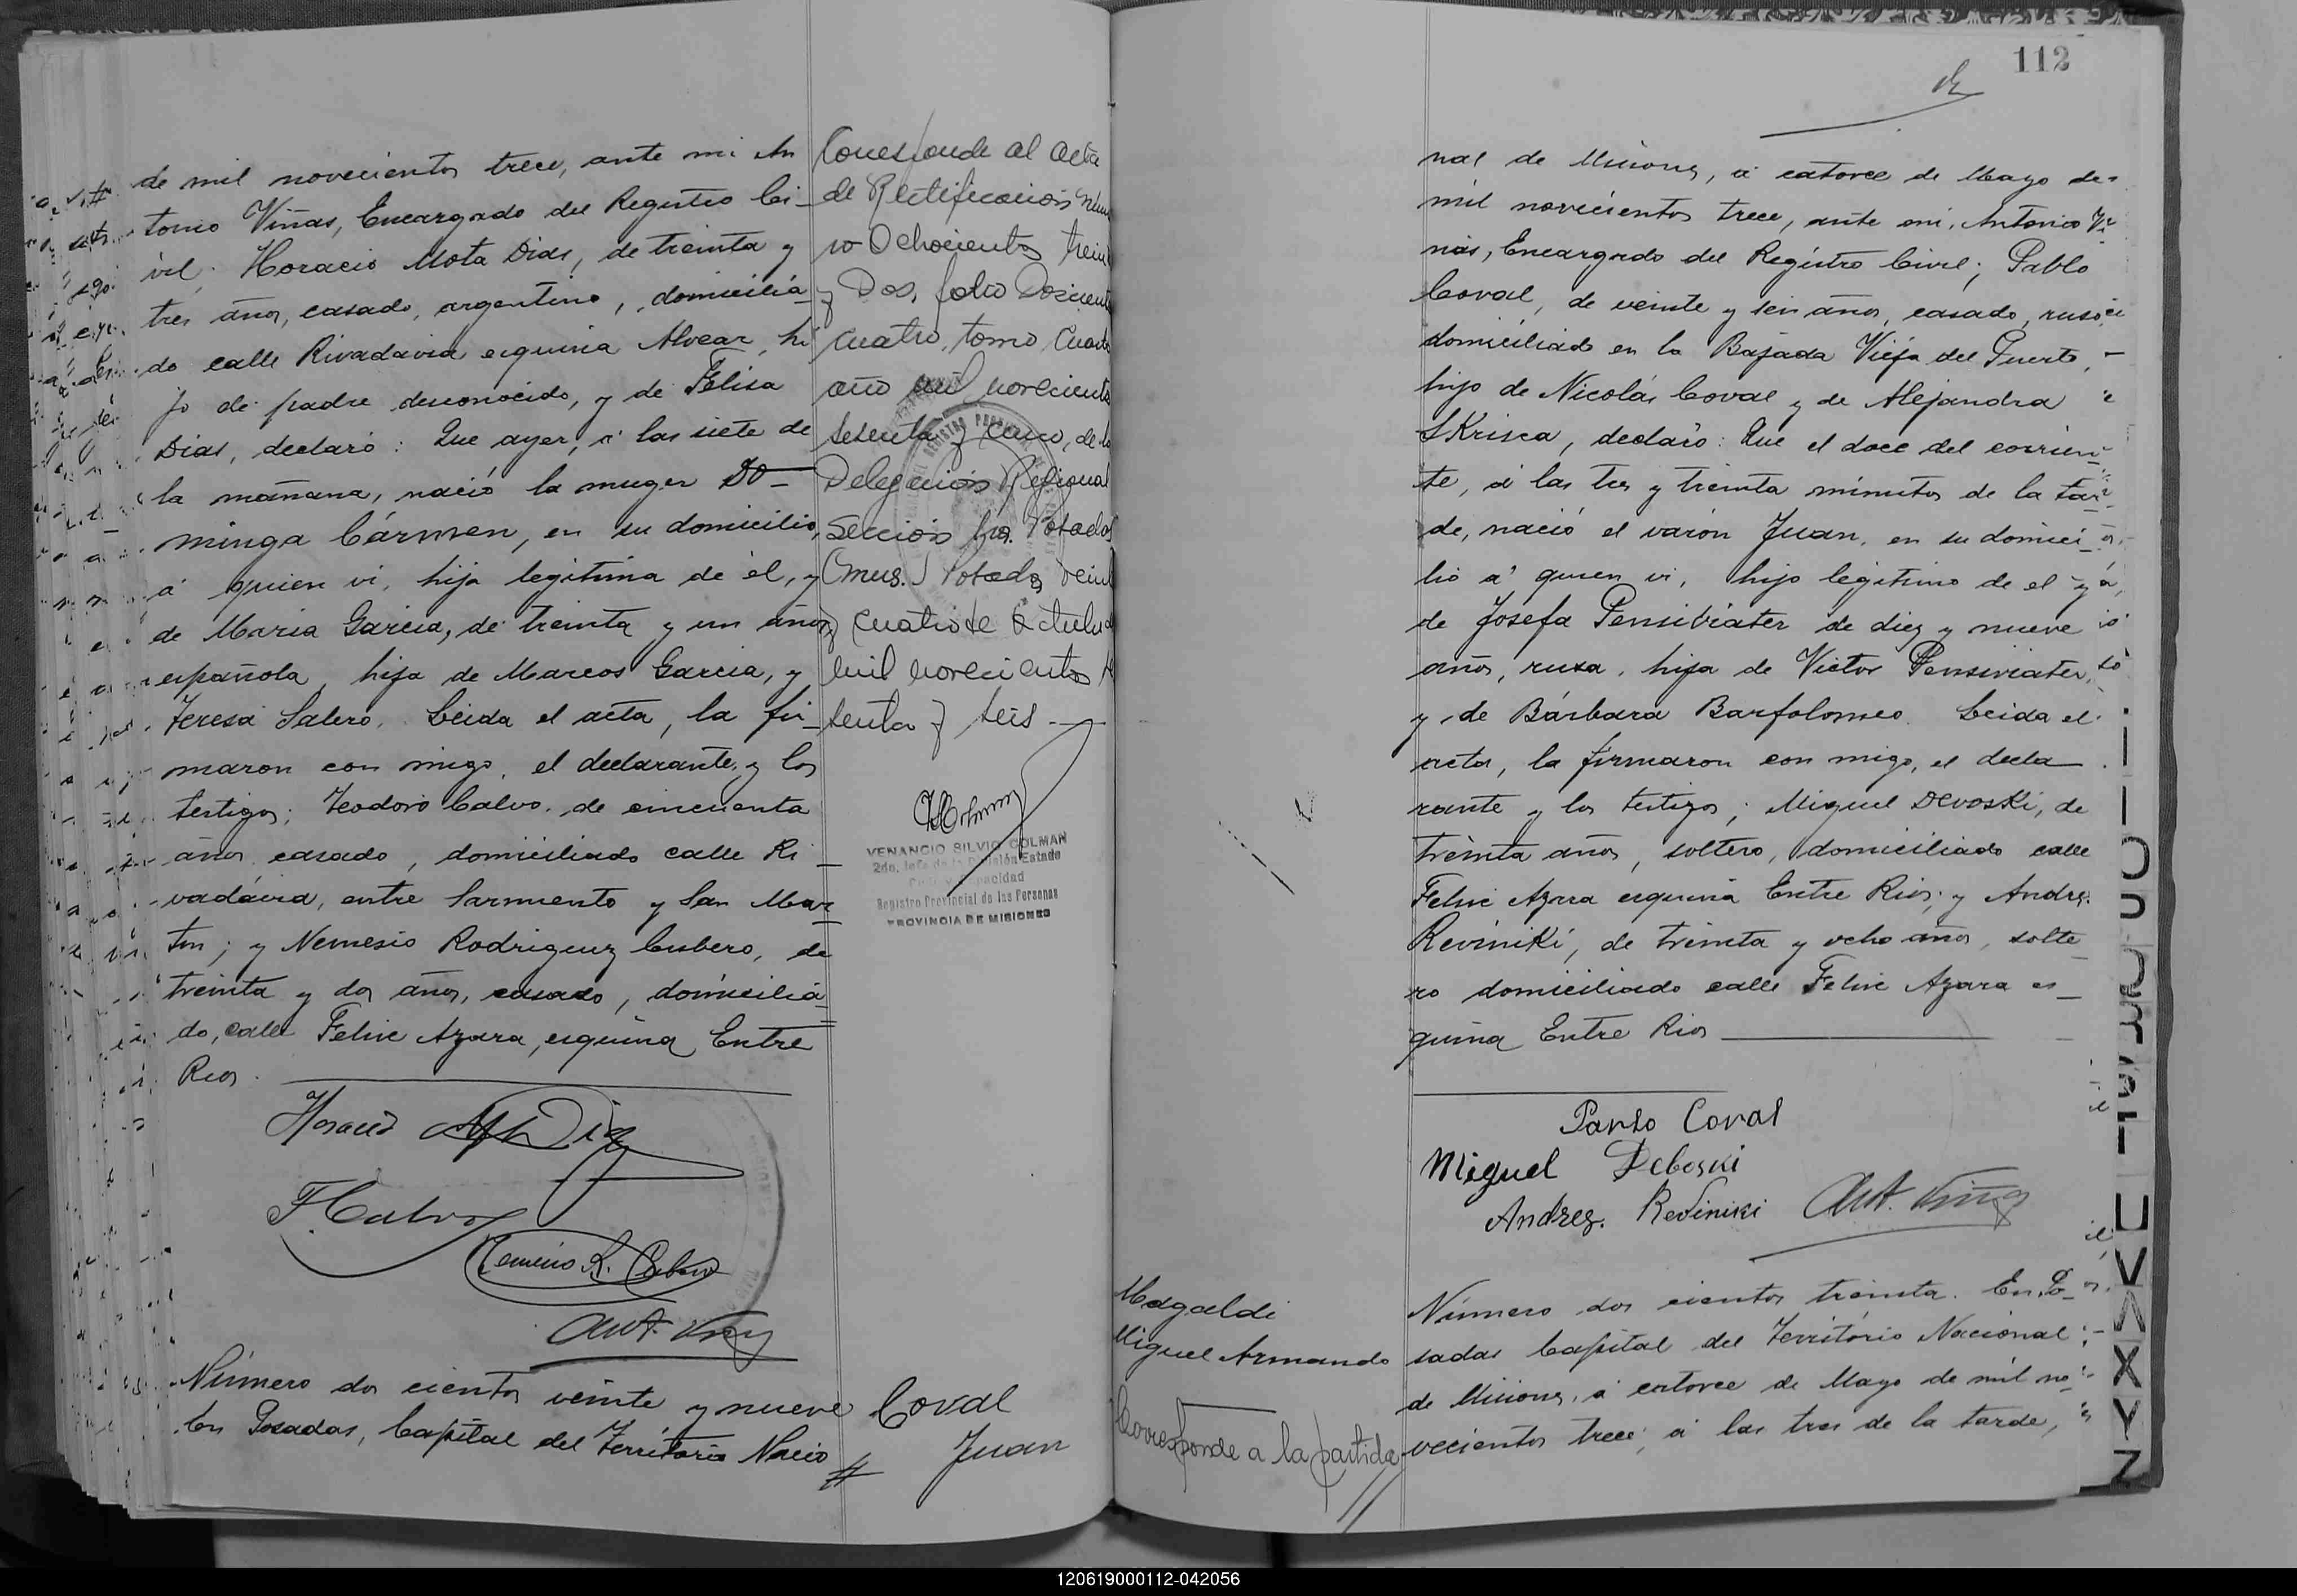 de mil novecientos trece, ante mi An
tonio Viñas, Encargado del Registro Ci-
vil; Horacio Mota Dias, de treinta y
tres años, casado, argentino, domicilia
do calle Rivadavia esquina Alvear, hi
jo de padre desconocido, y de Felisa
Dias, declaró: Que ayer, á las siete de
la mañana, nació la muger Do-
minga Cármen, en su domicilio,
á quien vi, hija legitima de él, y
de Maria Garcia, de treinta y un años
española, hija de Marcos Garcia, y
Teresa Salero. Leida el acta, la fir-
maron con migo, el declarante y los
testigos; Teodoro Calvo, de cincuenta
años casado, domiciliado calle Ri-
vadavia, entre Sarmiento y San Mar
tin; y Nemesio Rodriguez Cubero, de
treinta y dos años, casado, domicilia
do, calle Felix Azara, esquina Entre
Rios.
Horacio M Dias
T Calvo
Nemesio R. Cubero
Ant. Viñas
Número dos cientos veinte y nueve
En Posadas, Capital del Territorio Nacio
Corresponde al acta
de Rectificación núme
ro Ochocientos trein
y Dos, folio Doscientos
cuatro, tomo Cuarto
año mil novecientos
setenta y cinco, de la
Delegación Regional
Sección 1ra. Posadas
(Mnes.) Posadas vein
cuatro de Octubre
mil novecientos se
tenta y seis
VENANCIO SILVIO COLMAN
2do. Jefe de la División Estado
Civil y Capacidad
Registro Provincial de las Personas
PROVINCIA DE MISIONES
Coval
Juan
112
nal de Misiones, á catorce de Mayo de
mil novecientos trece, ante mi, Antonio Vi
ñas, Encargado del Registro Civil; Pablo
Coval, de veinte y seis años, casado, ruso
domiciliado en la Bajada Vieja del Puerto,
hijo de Nicolás Coval y de Alejandra
SKrisca, declaró: Que el doce del corrien
te, á las tres y treinta minutos de la tar
de, nació el varón Juan, en su domici
lio á quien vi, hijo legitimo de el y
de Josefa Pensiviater de diez y nueve
años, rusa, hija de Victor Pensiviater,
y de Bárbara Barfolomeo. Leida el
acta, la firmaron con migo, el decla
rante y los testigos; Miguel Devoski, de
treinta años, soltero, domiciliado calle
Felix Azara esquina Entre Rios; y Andrs.
Reviniki, de treinta y ocho años, solte
ro domiciliado calle Felix Azara es-
quina Entre Rios
Pavlo Coval
Miguel Deboski
Andres. Reviniki Ant. Viñas
Magaldi
Miguel Armando
Corresponde a la partida
Número dos cientos treinta. En Po
sadas Capital del Territorio Nacional
de Misiones, á catorce de Mayo de mil no
vecientos trece, á las tres de la tarde,
U V X Y Z
120619000112-042056